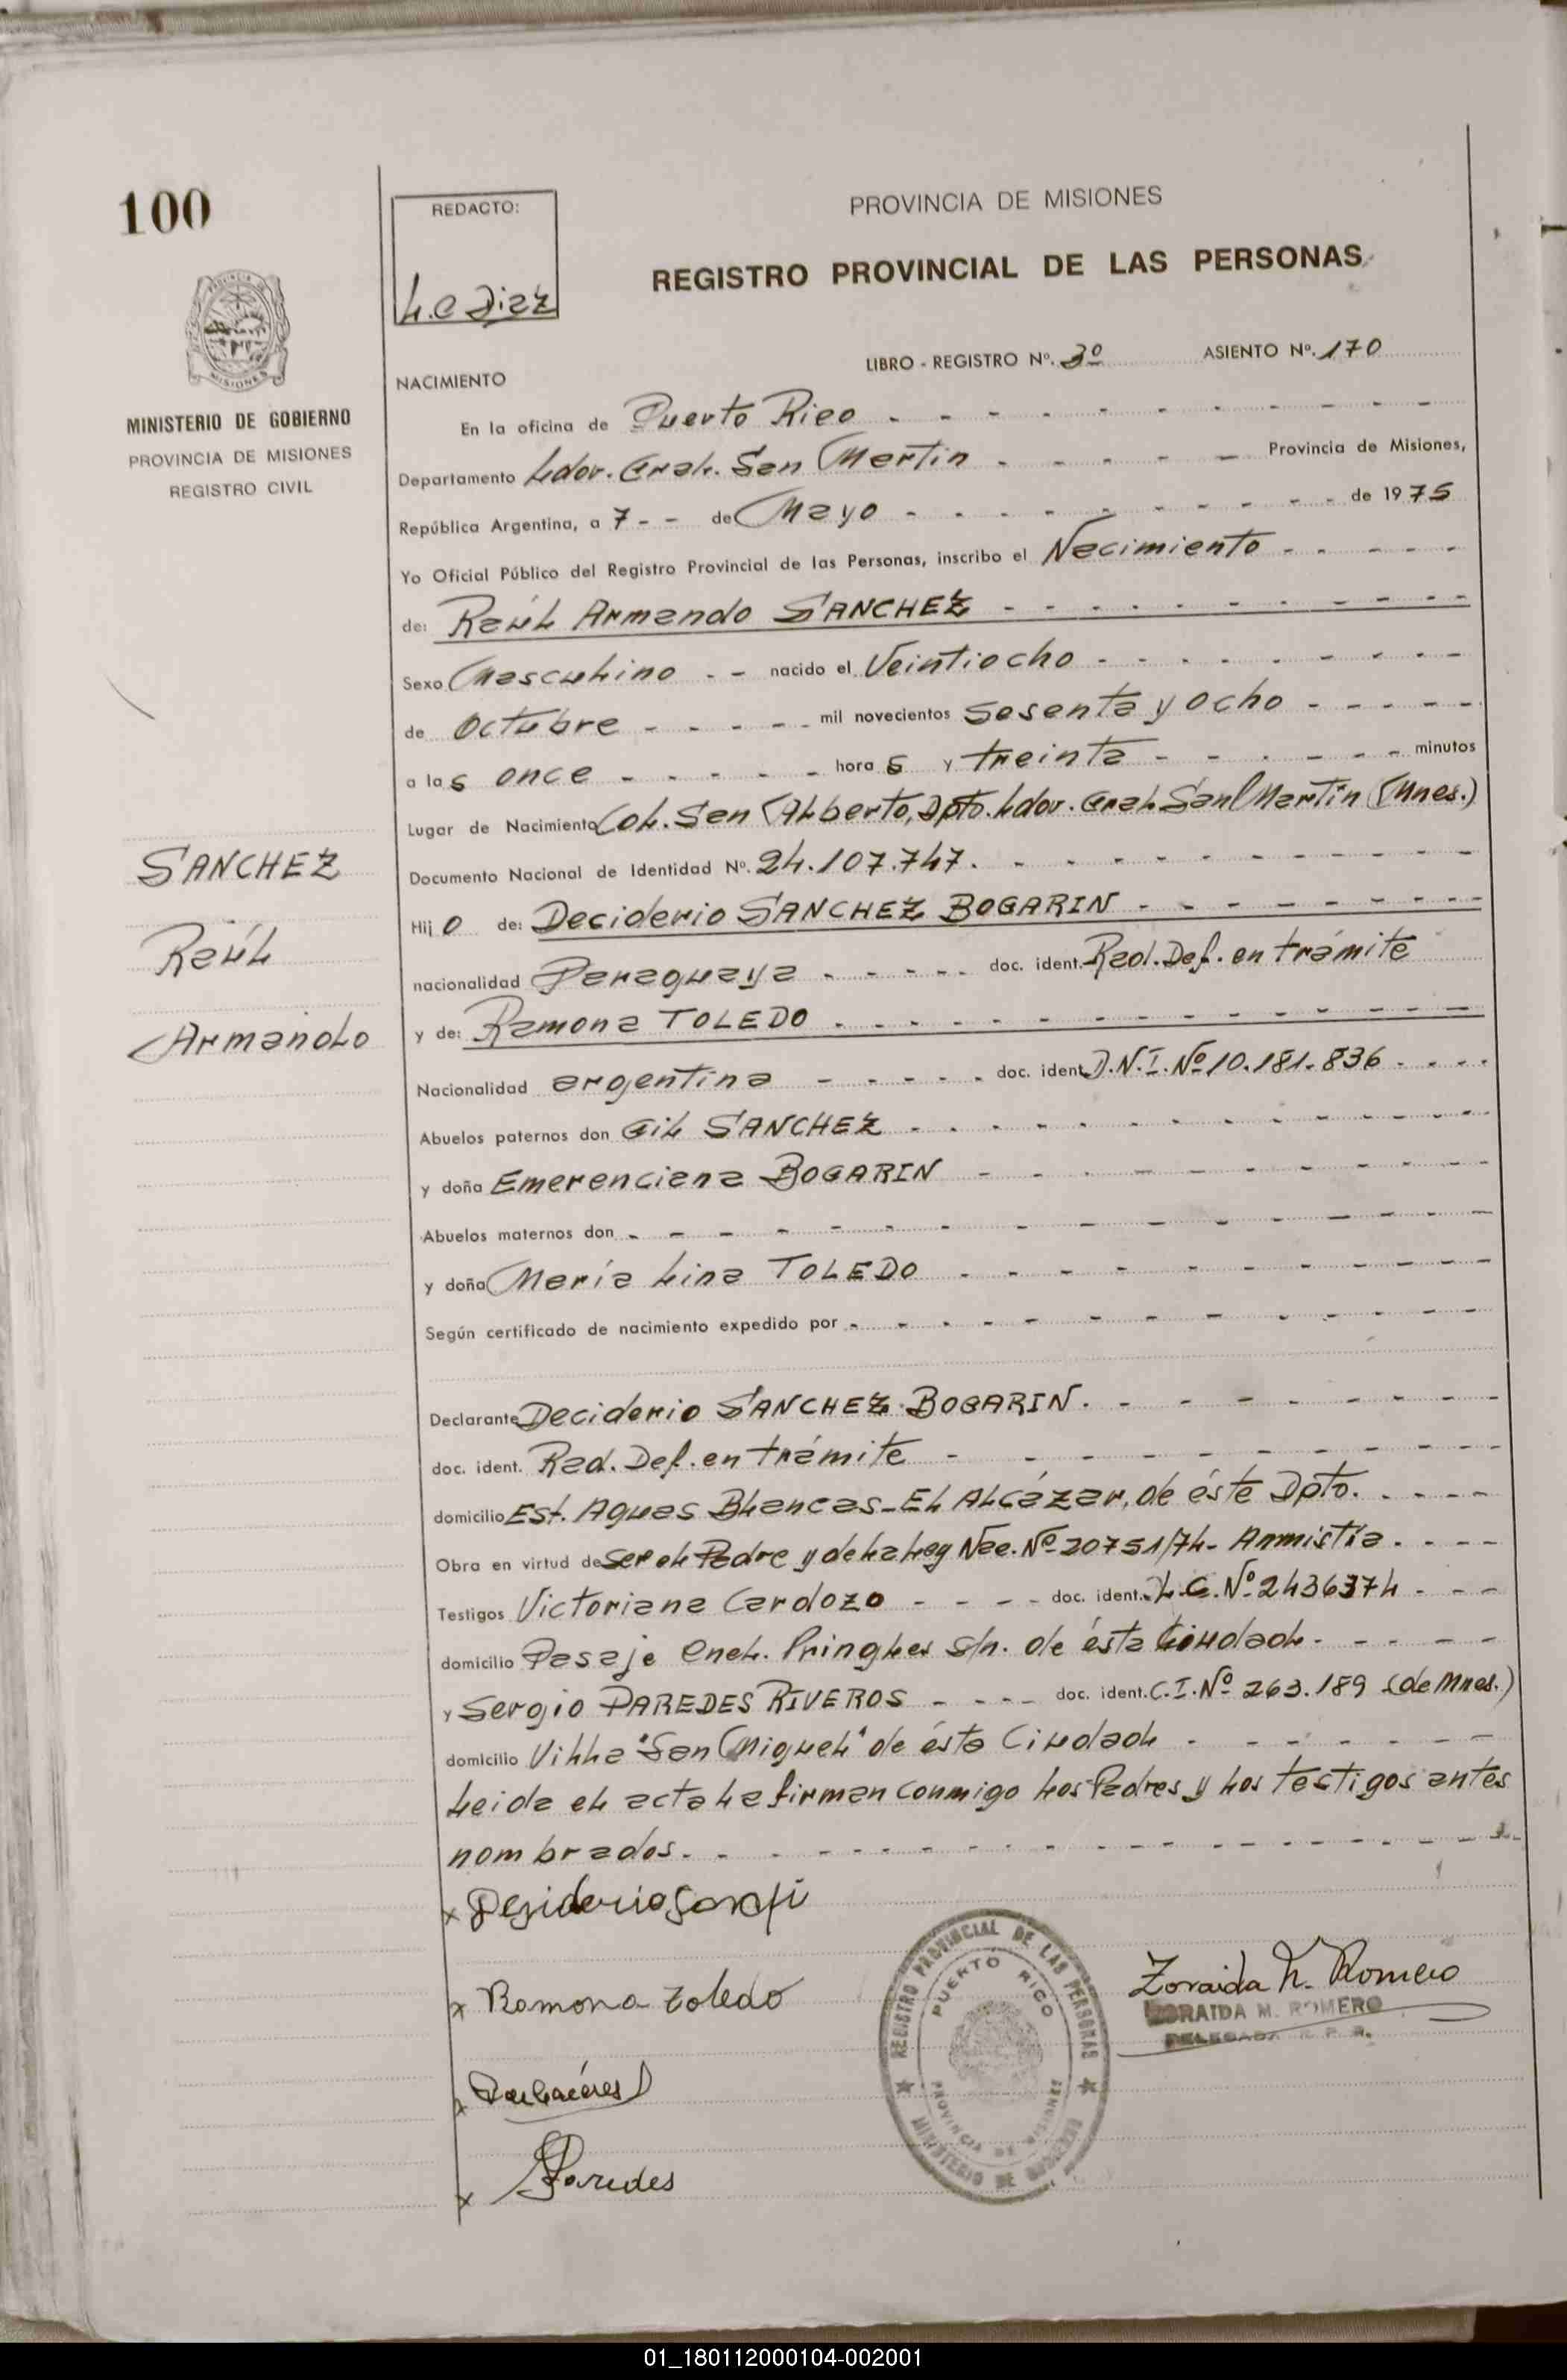 100
REDACTO:
L.C Diaz
PROVINCIA DE MISIONES
REGISTRO PROVINCIAL DE LAS PERSONAS
MISIONES
MINISTERIO DE GOBIERNO
PROVINCIA DE MISIONES
REGISTRO CIVIL
LIBRO - REGISTRO Nº. 3º ASIENTO Nº. 170
NACIMIENTO
En la oficina de Puerto Rico - - - - - - - - - -
Departamento Ldor. Gral. San Martin - - - - - Provincia de Misiones,
República Argentina, a 7 - - de Mayo - - - - - - - - - de 1975
Yo Oficial Público del Registro Provincial de las Personas, inscribo el Nacimiento - - - - -
de: Raúl Armando SANCHEZ - - - - - - - - - -
Sexo Masculino - - nacido el Veintiocho - - - - - - - -
de Octubre - - - - - mil novecientos Sesenta y ocho - - - - -
a las once - - - - - horas y treinta - - - - - - - minutos
Lugar de Nacimiento Col. San Alberto, Dpto. Ldor. Gral. San Martín (Mnes.)
Documento Nacional de Identidad Nº. 24.107.747. - - - - - - - - - -
Hijo de: Deciderio SANCHEZ BOGARIN - - - - - - - - -
nacionalidad Paraguaya - - - - - doc. ident. Rad. Def. en trámite
y de: Ramona TOLEDO - - - - - - - - - - - - -
Nacionalidad argentina - - - - - doc. ident. D.N.I. Nº 10.181.836 - - - -
Abuelos paternos don Gil SANCHEZ - - - - - - - - - - -
y doña Emerenciana BOGARIN - - - - - - - - - -
Abuelos maternos don - - - - - - - - - - - - - - -
y doña María Lina TOLEDO - - - - - - - - - -
Según certificado de nacimiento expedido por - - - - - - - - - - -
Declarante Deciderio SANCHEZ BOGARIN. - - - - - - - -
doc. ident. Rad. Def. en trámite - - - - - - - - - -
domicilio Est. Aguas Blancas - El Alcázar, de éste Dpto. - - - -
Obra en virtud de ser el Padre y de la Ley Nac. Nº 20751/74 - Anmistía - - - -
Testigos Victoriana Cardozo - - - - doc. ident. L.C. Nº 2436374 - - -
domicilio Pasaje Cnel. Pringles s/n. de ésta Ciudad - - - - -
y Sergio PAREDES RIVEROS - - - - doc. ident. C.I. Nº 263.189 (de Mnes.)
domicilio Villa "San Miguel" de ésta Ciudad - - - - - - -
Leida el acta la firman conmigo los Padres y los testigos antes
nombrados. - - - - - - - - - - - - - - - -
SANCHEZ
Raúl
Armando
x Desiderio
x Ramona Toledo
x
x Paredes
REGISTRO PROVINCIAL DE LAS PERSONAS
PUERTO RICO
PROVINCIA DE MISIONES
MINISTERIO DE GOBIERNO
Zoraida M. Romero
ZORAIDA M. ROMERO
DELEGADA R. P. P.
01_180112000104-002001